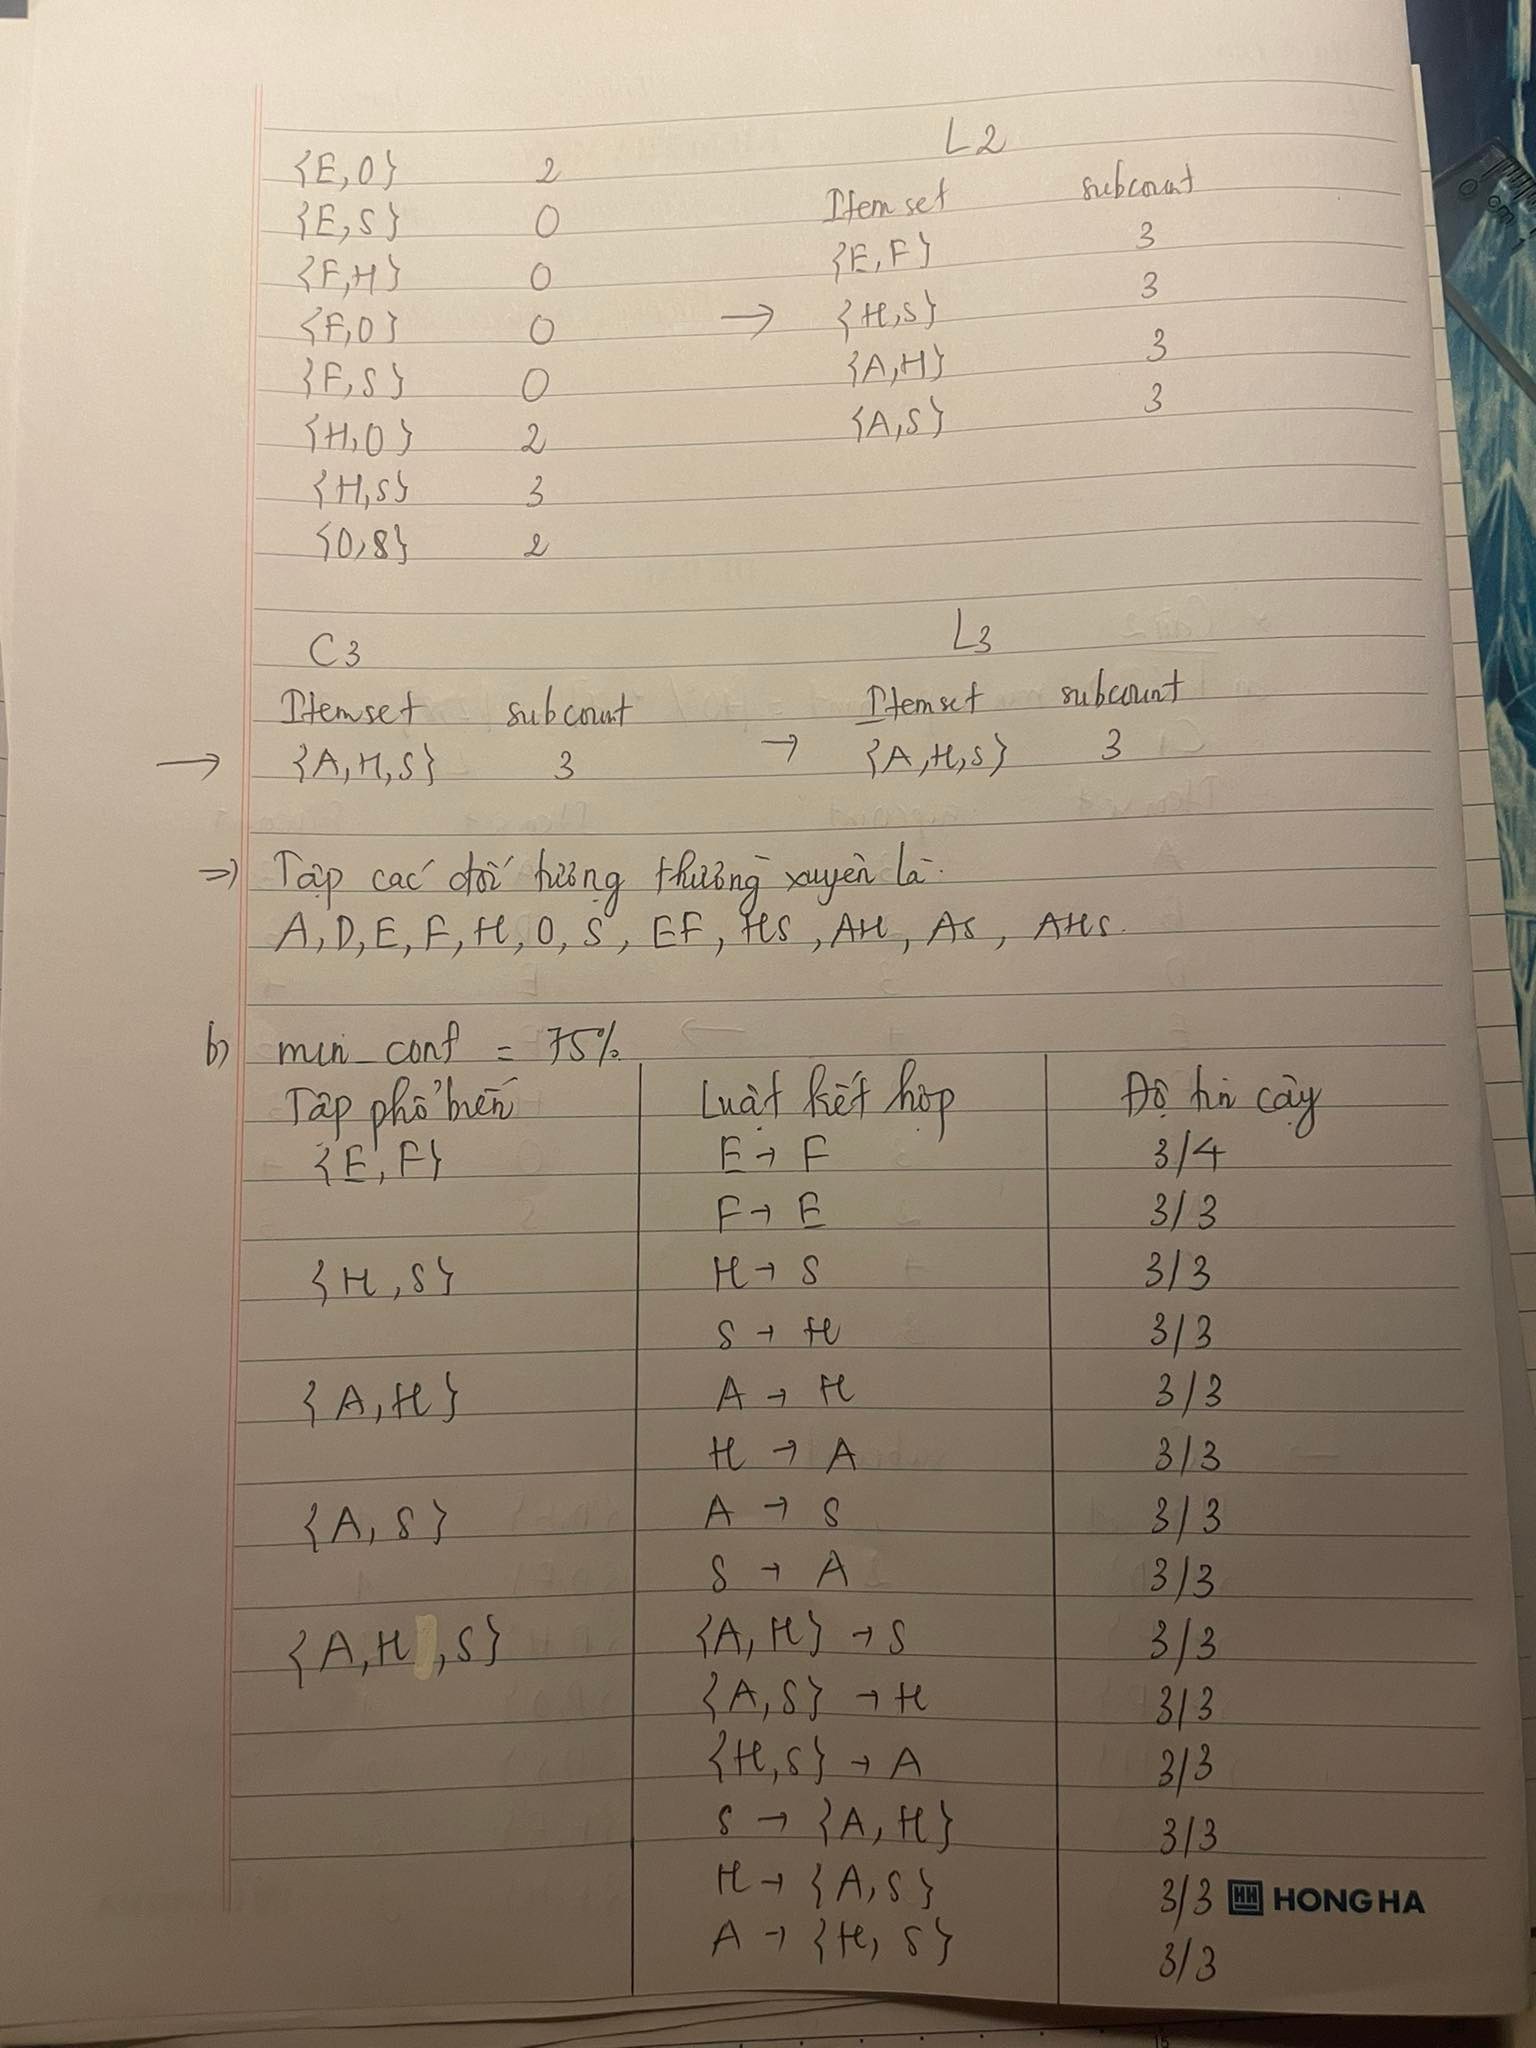 {E,O} 2
{E,S} 0
{F,H} 0
{F,O} 0
{F,S} 0
{H,O} 2
{H,S} 3
{O,S} 2
L2
Itemset subcount
{E,F} 3
→ {H,S} 3
{A,H} 3
{A,S} 3
C3
Itemset subcount
→ {A,H,S} 3
L3
Itemset subcount
→ {A,H,S} 3
=) Tập các đối tượng thường xuyên là:
A, D, E, F, H, O, S, EF, HS, AH, AS, AHS.
b) min_conf = 75%
Tập phổ biến Luật kết hợp Độ tin cậy
{E,F} E → F 3/4
F → E 3/3
{H,S} H → S 3/3
S → H 3/3
{A,H} A → H 3/3
H → A 3/3
{A,S} A → S 3/3
S → A 3/3
{A,H,S} {A,H} → S 3/3
{A,S} → H 3/3
{H,S} → A 3/3
S → {A,H} 3/3
H → {A,S} 3/3
HH HONG HA
A → {H,S} 3/3
0 cm 1
15